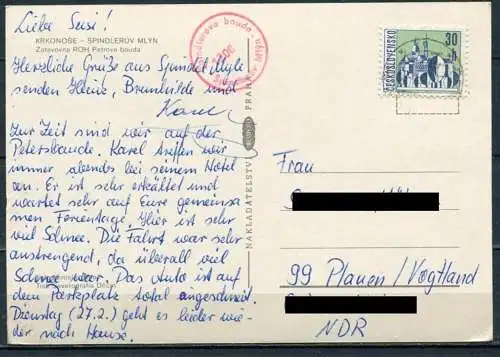 Liebe Susi!
KRKONOŠE - SPINDLERŮV MLÝN
Zotavovna ROH Petrova bouda
Herzliche Grüße aus Spindelmyle
senden Heinz, Brunhilde und
Karel
Zur Zeit sind wir auf der
Petersbaude. Karel treffen wir
immer abends bei seinem Hotel
an. Er ist sehr erkältet und
wartet sehr auf Eure gemeinsa
men Ferientage. Hier ist sehr
viel Schnee. Die Fahrt war sehr
anstrengend, da überall viel
Schnee war. Das Auto ist auf
dem Parkplatz total eingeschneit.
Dienstag (27.2.) geht es leider wie-
der nach Hause.
Špindlerova bouda
1200
NAKLADATELSTVÍ
PRAHA
30
h
ČESKOSLOVENSKO
Frau
99 Plauen/Vogtland
NDR